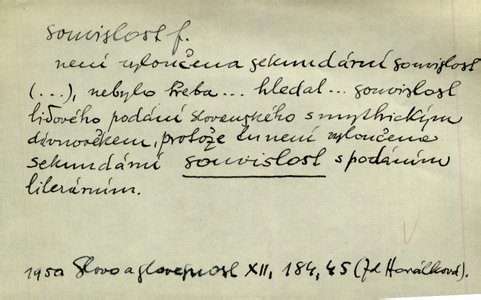 souvislost f.
není vyloučena sekundární souvislost
(...), nebylo třeba... hledat... souvislost
lidového podání slovenského s mythickým
dávnověkem, protože tu není vyloučena
sekundární souvislost s podáním
literárním.
1950 Slovo a slovesnost XII, 184, 45 (Jd Horálková).